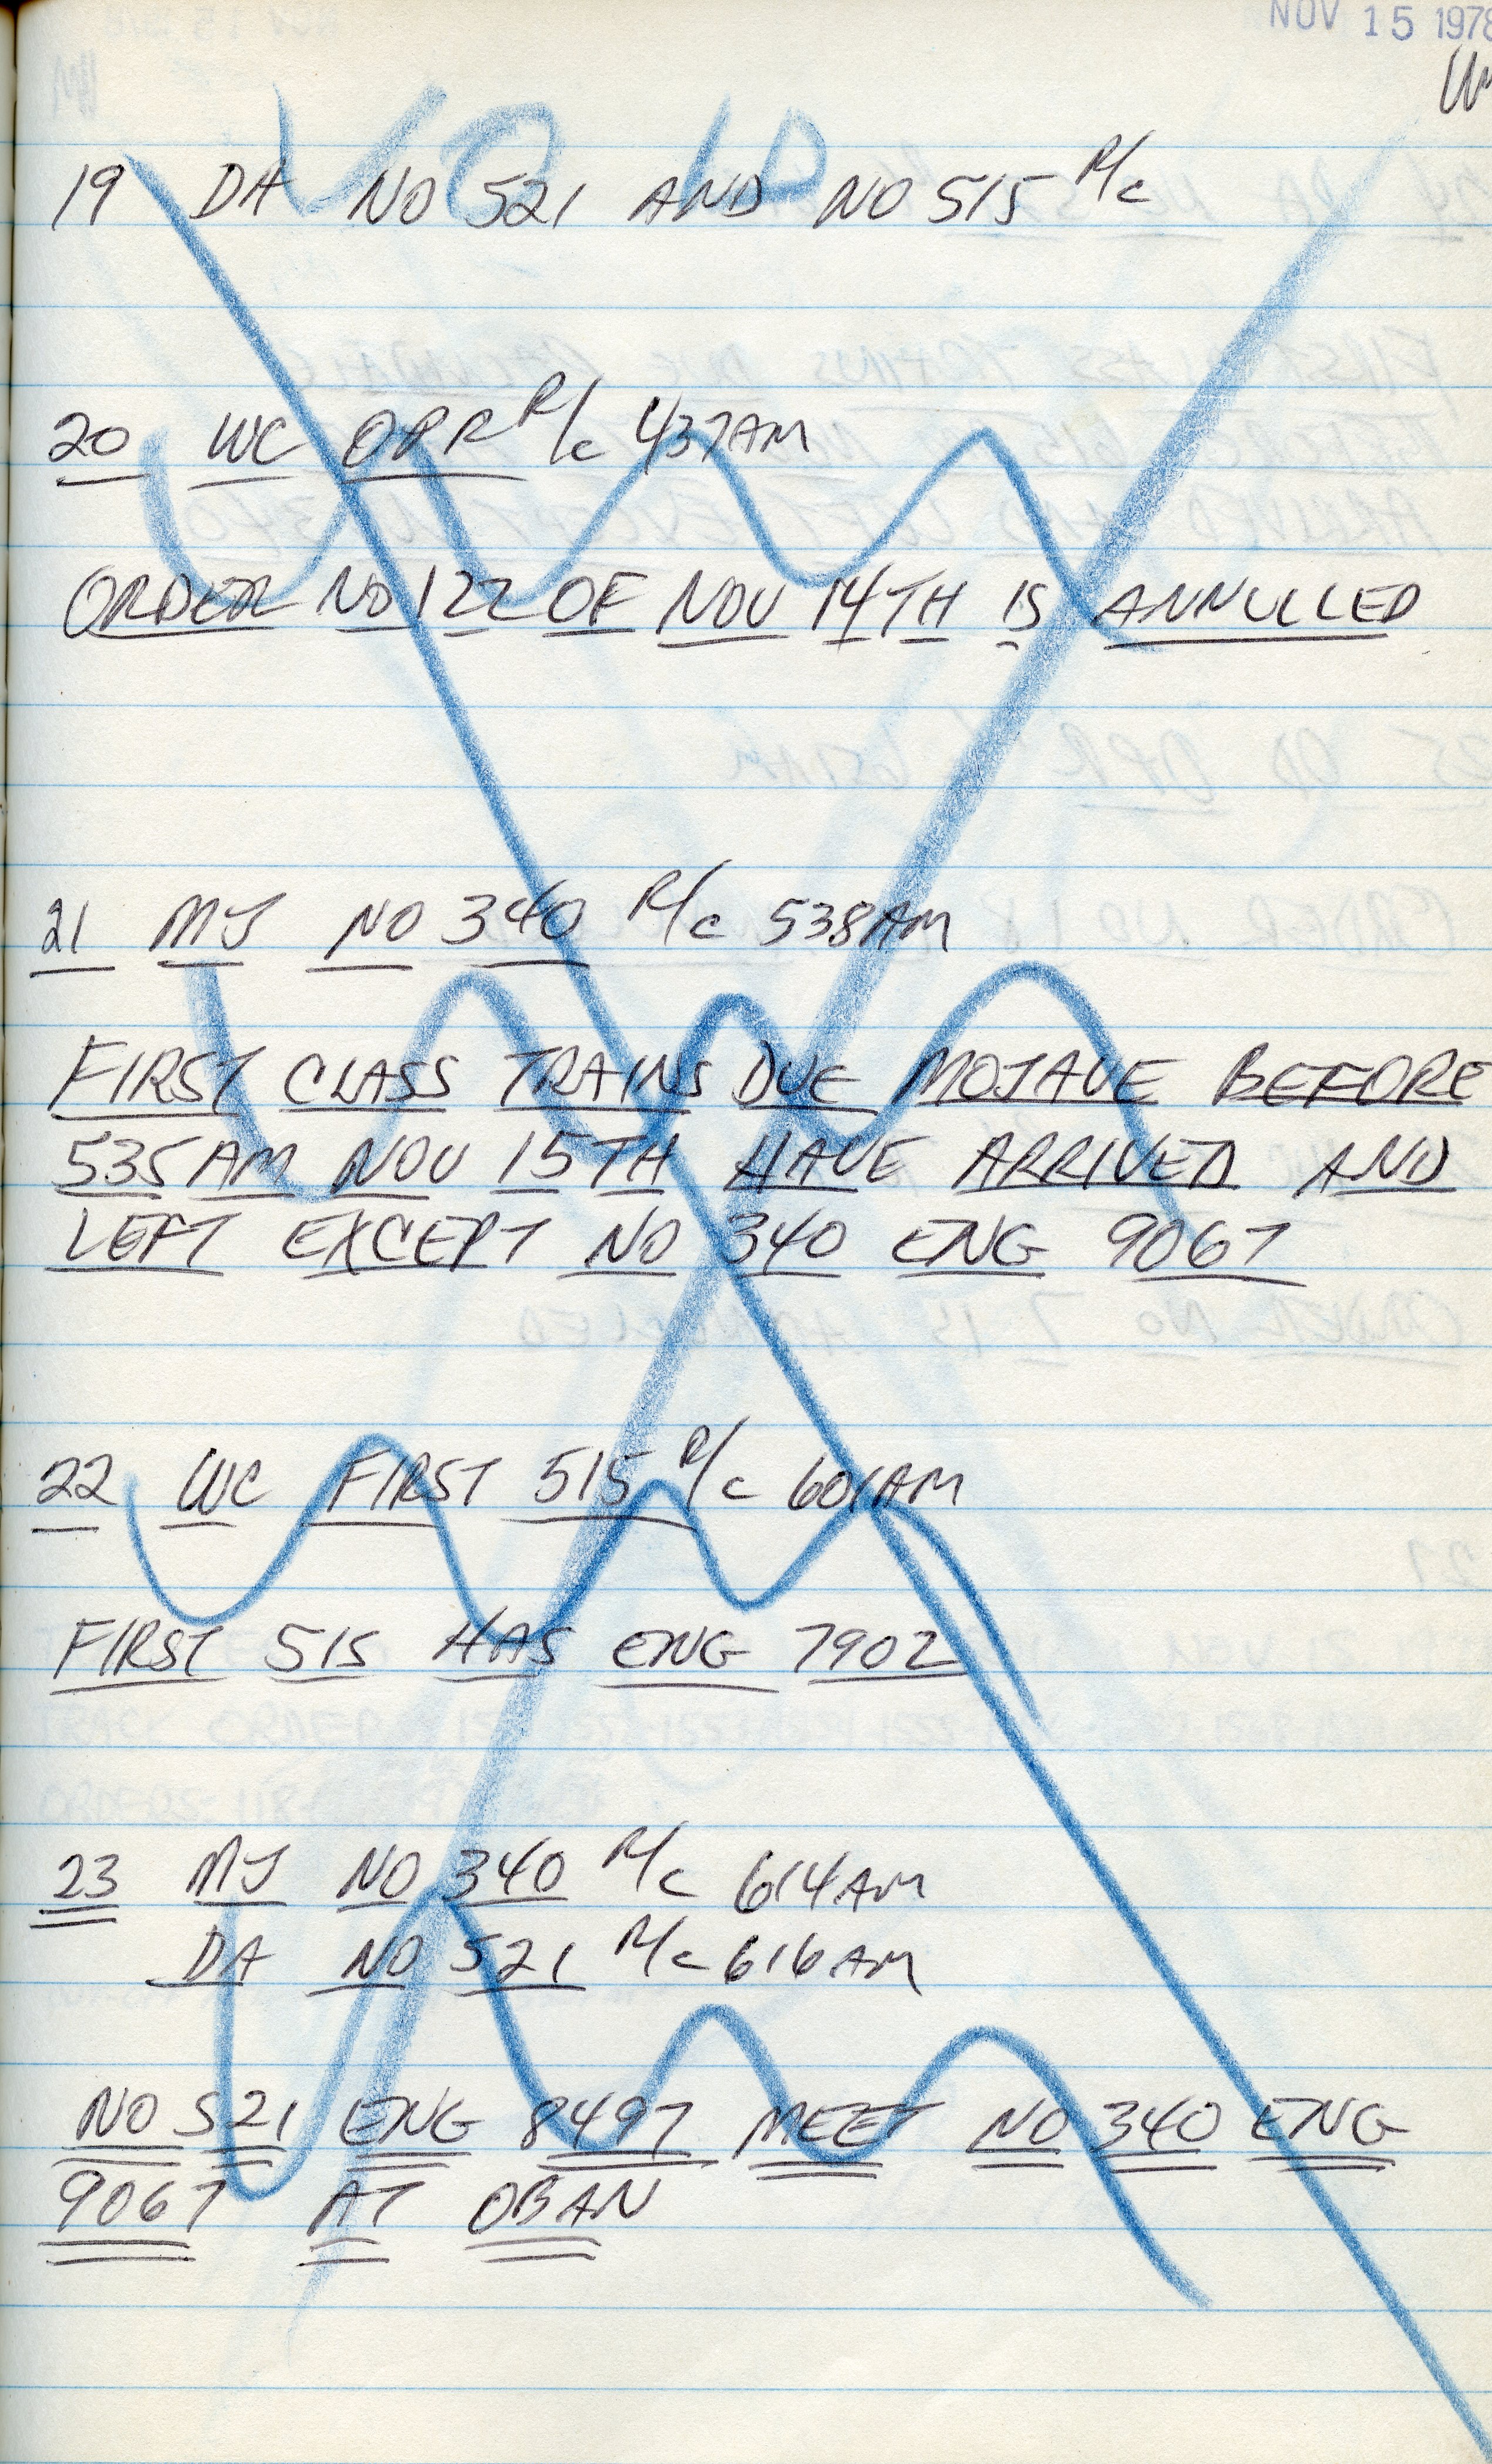 NOV 15 1978
VOID
19 DA NO 521 AND NO 515 R/c
20 WC OPR R/c 437AM
ORDER NO 122 OF NOV 14TH IS ANNULLED
21 MJ NO 340 R/c 538AM
FIRST CLASS TRAINS DUE MOJAVE BEFORE
535AM NOV 15TH HAVE ARRIVED AND
LEFT EXCEPT NO 340 ENG 9067
22 WC FIRST 515 R/c 601AM
FIRST 515 HAS ENG 7902
23 MJ NO 340 R/c 614AM
DA NO 521 R/c 616AM
NO 521 ENG 8497 MEET NO 340 ENG
9067 AT OBAN